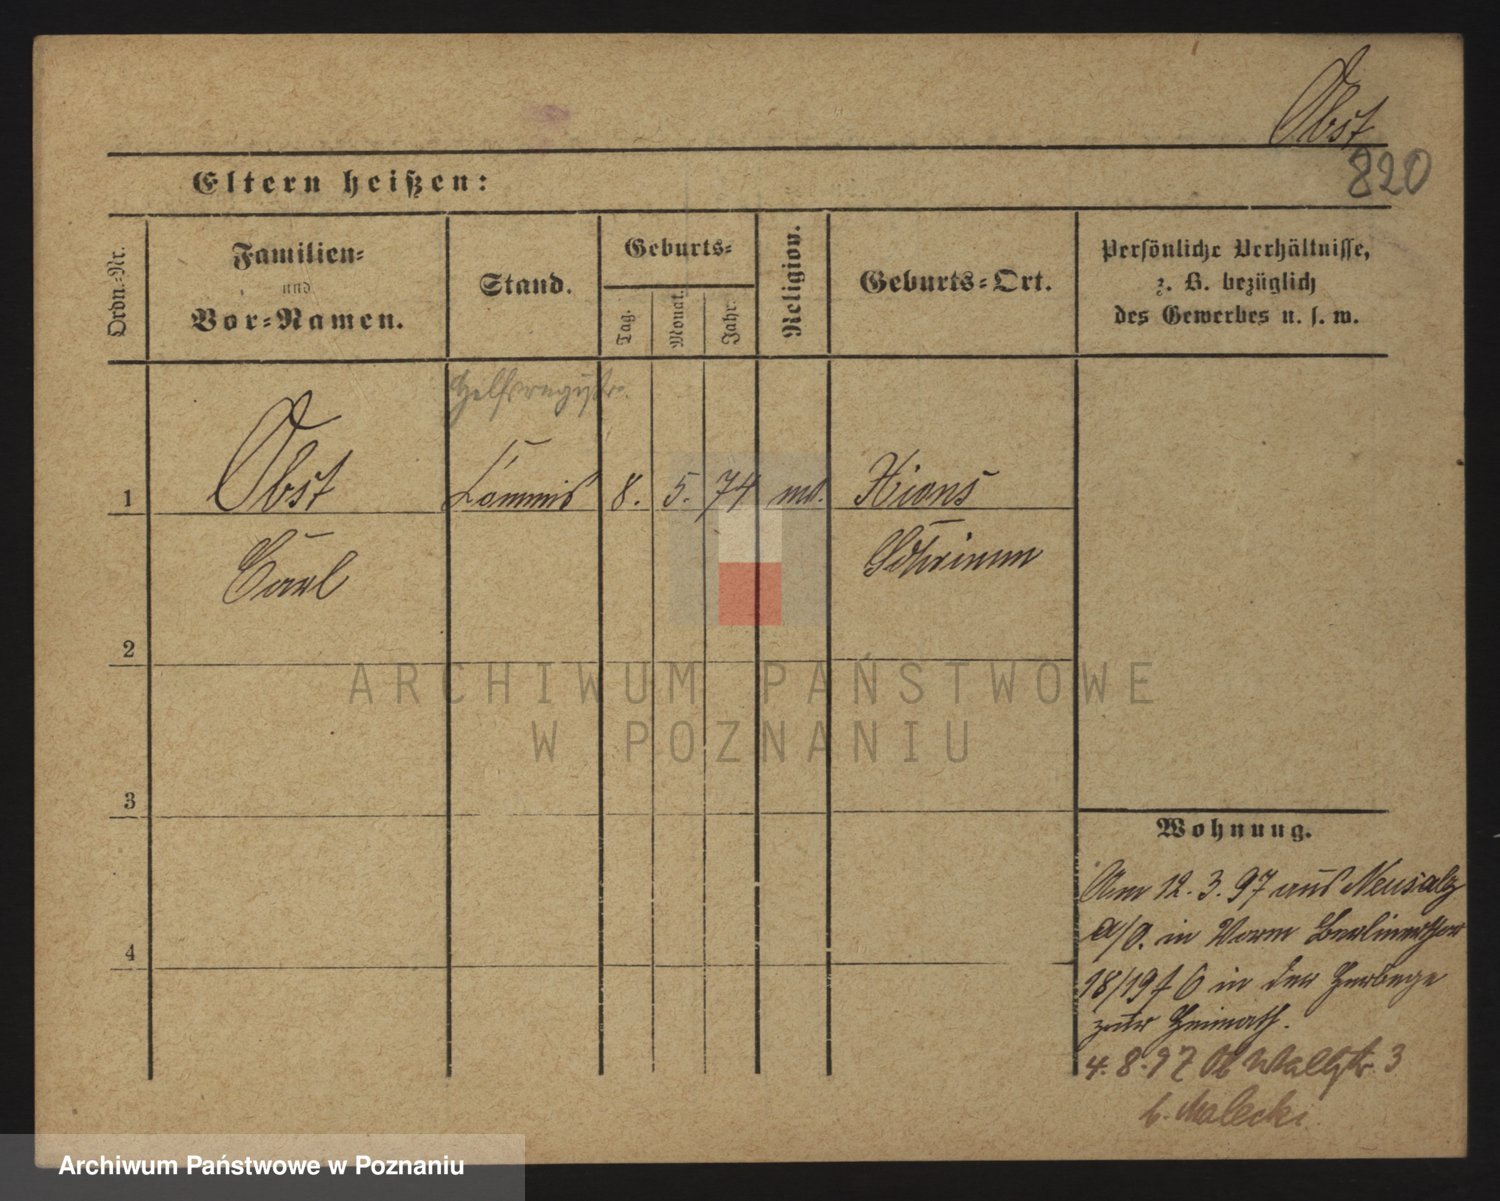 Obst
820
Eltern heißen:
Ordn.-Nr.
Familien-
und
Vor-Namen.
Stand.
Geburts-
Tag.
Monat.
Jahr.
Religion.
Geburts-Ort.
Persönliche Verhältnisse,
z. B. bezüglich
des Gewerbes u. s. w.
1
Obst
Commis
8.
5.
74
Xions
Carl
Schrimm
2
ARCHIWUM PAŃSTWOWE
W POZNANIU
3
Wohnung.
Am 12.3.97 aus Neusalz
a/O. in Berlinerthor
4
18/19 in der Herberge
zur Heimath.
4.8.97 Wallstr. 3
b. Malecki
Archiwum Państwowe w Poznaniu